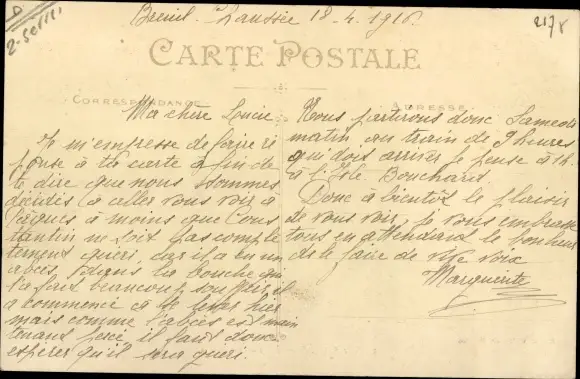 Breuil-Chaussée 18-4-1916
217 x
CARTE POSTALE
CORRESPONDANCE
ADRESSE
Ma chère Lucie
Je m'empresse de faire ré
ponse à ta carte afin de
te dire que nous sommes
décidés à aller vous voir à
Pâques à moins que Cons
tantin ne soit pas complè
tement guéri, car il a eu un
abcès dans la bouche qui
l'a fait beaucoup souffrir il
a commencé à se lever hier
mais comme l'abcès est main
tenant percé il faut donc
espérer qu'il sera guéri.
Nous partirons donc Samedi
matin au train de 9 heures
qui doit arriver je pense à 1 h.
à l'Isle Bouchard
Donc à bientôt le plaisir
de vous voir, je vous embrasse
tous en attendant le bonheur
de le faire de vive voix
Marguerite